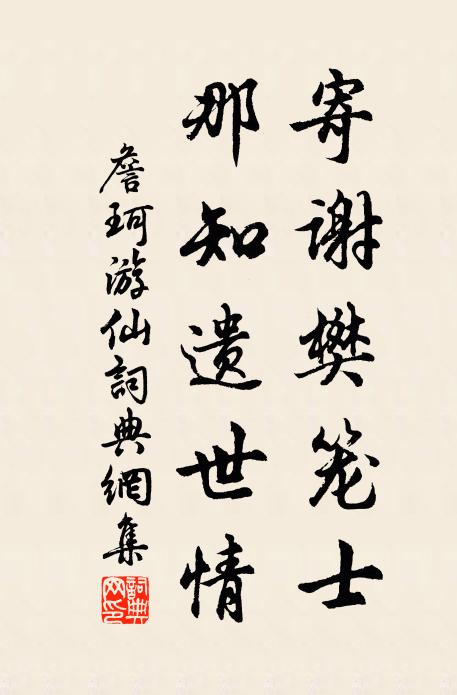 寄谢樊笼士
那知遗世情
詹珂游仙詞典網集
詞典网印